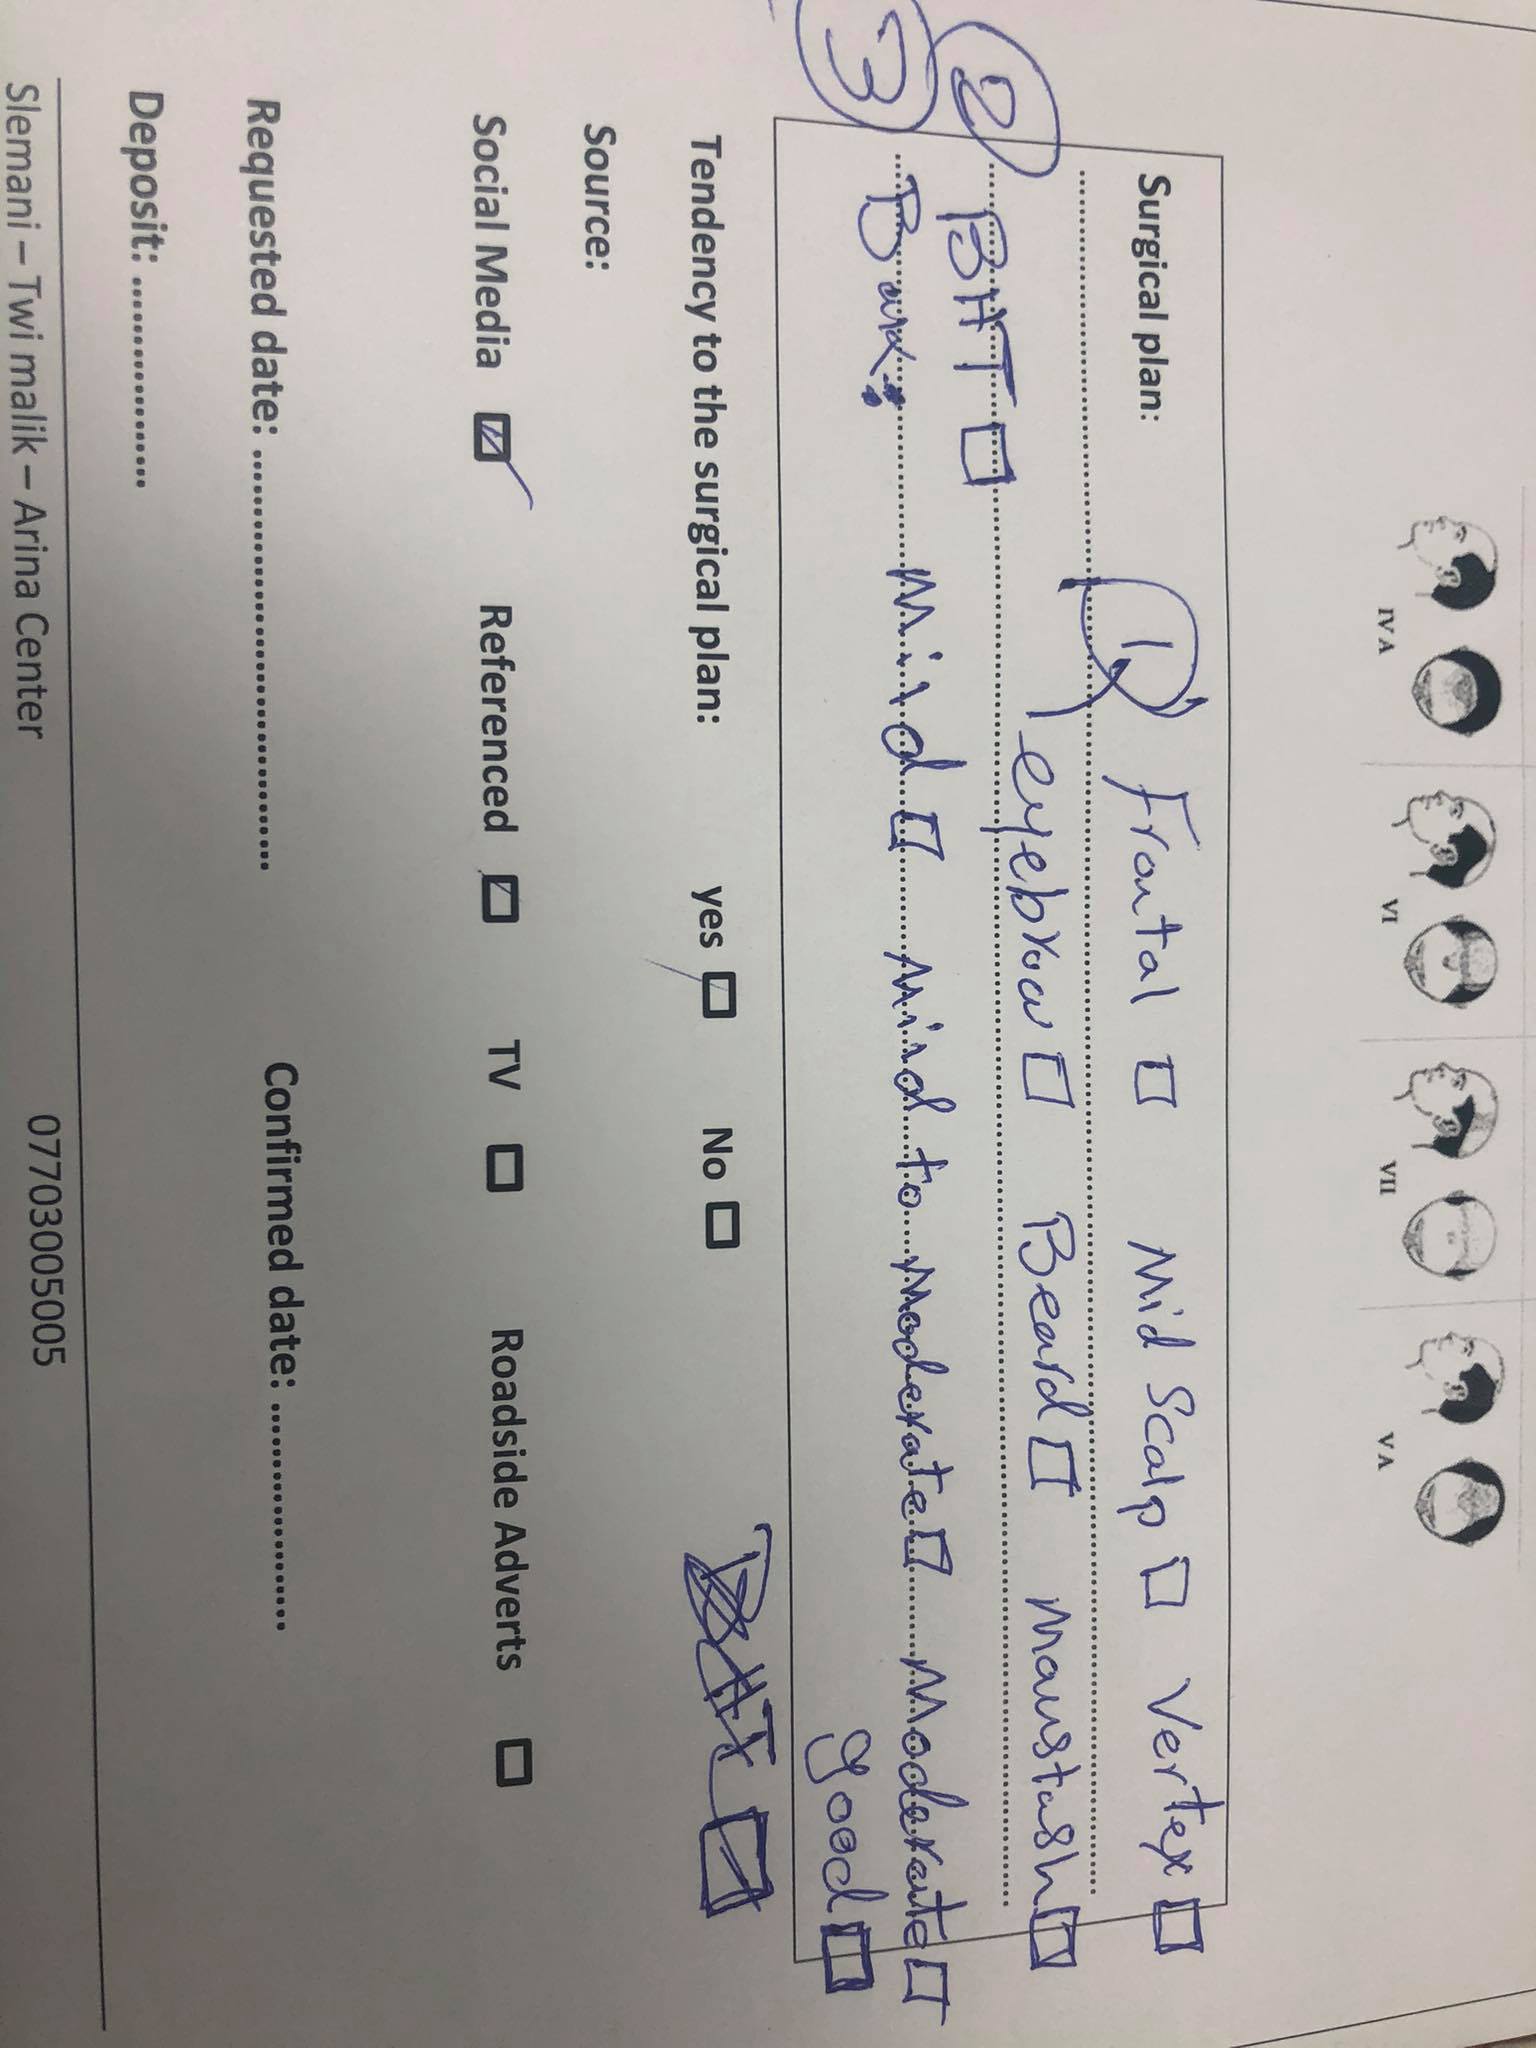 IV A VI VII V A
Surgical plan: 1 Frontal Mid Scalp Vertex
eyebrow Beard Moustash
2 BHT
3 Bak: Mild Mild to Moderate Moderate
good
BHT
Tendency to the surgical plan: yes No
Source:
Social Media Referenced TV Roadside Adverts
Requested date: .......................................... Confirmed date: .....................
Deposit: ...................
Slemani – Twi malik – Arina Center 07703005005